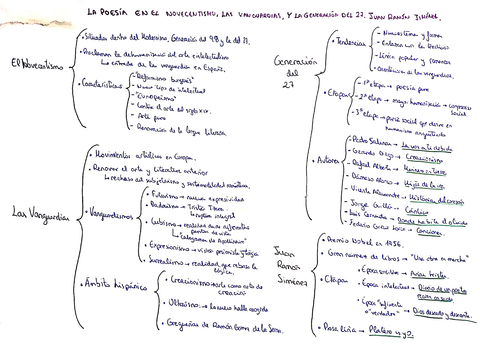 LA POESÍA EN EL NOVECENTISMO, LAS VANGUARDIAS, Y LA GENERACIÓN DEL 27. JUAN RAMÓN JIMÉNEZ.
El Novecentismo
• Situados dentro del Modernismo, Generación del 98 y la del 27.
la entrada de las vanguardias en España.
• Características
- "Reformismo burgués"
- Nuevo tipo de intelectual
- "Europeísmo"
- Contra el arte del siglo XIX.
- Arte puro
- Renovación de la lengua literaria.
Las Vanguardias
• Movimientos artísticos en Europa.
• Renovar el arte y literatura anterior
• Vanguardismos
• Futurismo → nueva expresividad
• Dadaísmo → Tristán Tzara
ruptura integral
• Cubismo → realidad desde diferentes
puntos de vista
"Caligramas de Apollinaire"
• Expresionismo → visión
• Surrealismo → realidad que rebasa la
lógica.
• Ámbito hispánico
• Creacionismo → arte como acto de
creación
• Ultraísmo →
• Greguerías de Ramón Gómez de la Serna.
Generación
del
27
• Tendencias
• Etapas
- 1ª etapa → poesía pura
- 2ª etapa → mayor humanización → compromiso
social
- 3ª etapa → poesía social que deriva en
humanismo angustiado
• Autores
• Pedro Salinas → La voz a ti debida
• Gerardo Diego → Creacionismo
• Rafael Alberti → Marinero en Tierra
• Dámaso Alonso → Hijos de la ira
• Vicente Aleixandre → Historia del corazón
• Jorge Guillén → Cántico
• Luis Cernuda → Donde habite el olvido
• Federico García Lorca → Canciones.
Juan
Ramón
Jiménez
• Premio Nobel en 1956.
• Gran número de libros → "Una obra en marcha"
• Etapas
• Época sensitiva → Arias tristes.
• Época intelectual → Diario de un poeta
recién casado.
• Época "suficiente
o verdadera" → Dios deseado y deseante.
• Prosa lírica → Platero y yo.